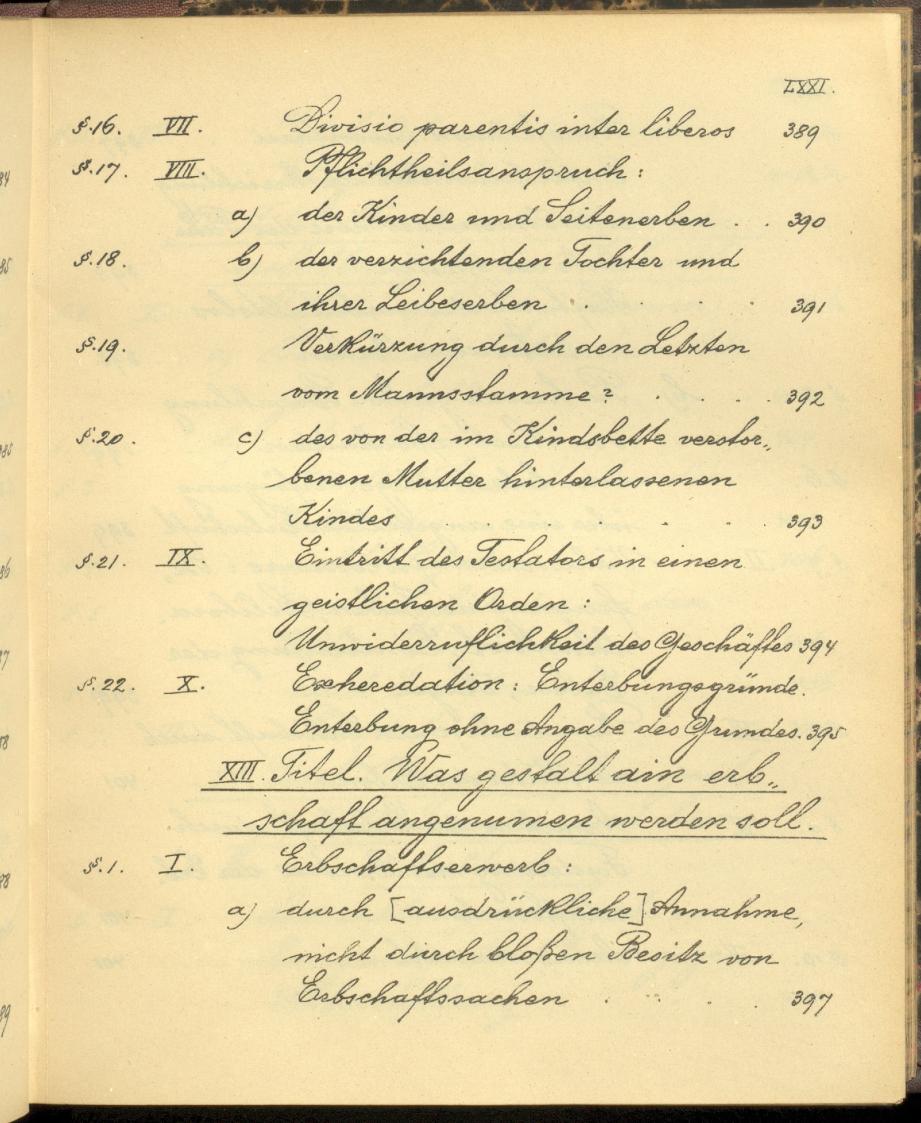 LXXI.
§.16. VII. Divisio parentis inter liberos 389
§.17. VIII. Pflichtheilsanspruch :
a) der Kinder und Seitenerben . . 390
§.18. b) der verzichtenden Tochter und
ihrer Leibeserben . . . . 391
§.19. Verkürzung durch den Letzten
vom Mannsstamme ? . . . 392
§.20. c) des von der im Kindsbette verstor„
benen Mutter hinterlassenen
Kindes . . . 393
§.21. IX. Eintritt des Testators in einen
geistlichen Orden :
Unwiderruflichkeit des Geschäftes 394
§.22. X. Exheredation : Enterbungsgründe.
Enterbung ohne Angabe des Grundes. 395
XIII. Titel. Was gestalt ain erb„
schaft angenumen werden soll.
§.1. I. Erbschaftserwerb :
a) durch [ausdrückliche] Annahme,
nicht durch bloßen Besitz von
Erbschaftssachen . . . . 397